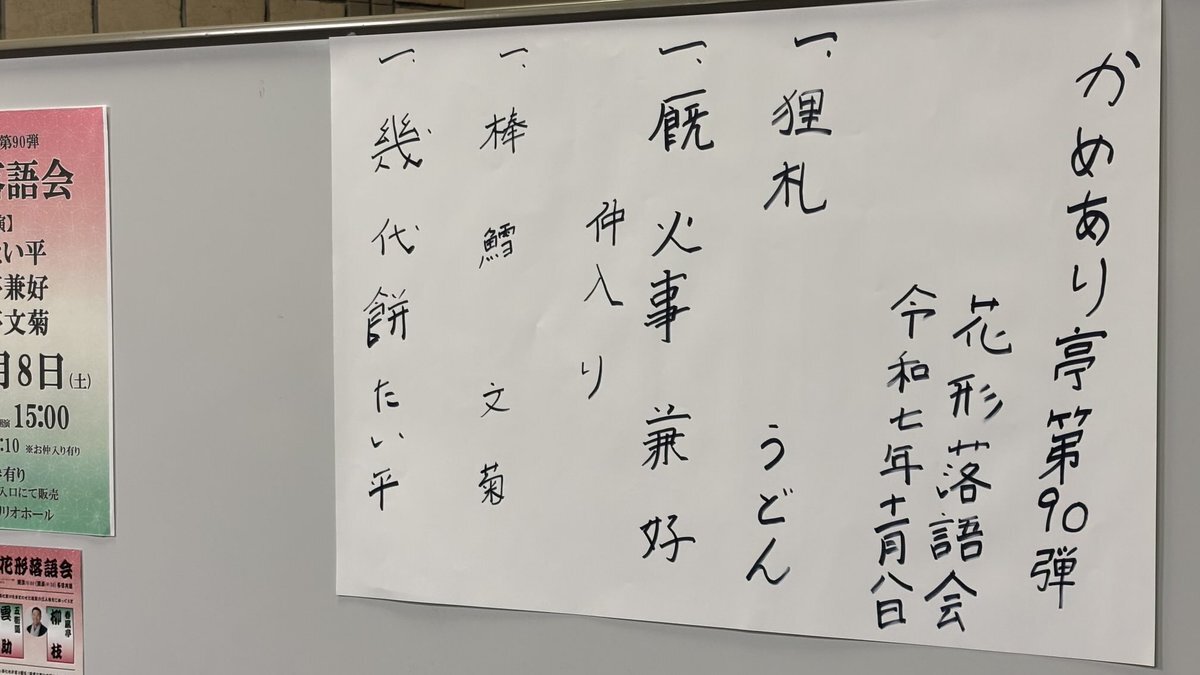 かめあり亭第90弾
花形落語会
令和七年十一月八日
一、狸札 うどん
一、厩火事 兼好
仲入り
一、棒鱈 文菊
一、幾代餅 たい平
第90弾
落語会
演】
たい平
亭兼好
亭文菊
月8日(土)
開演15:00
:10 ※お仲入り有り
有り
入口にて販売
リリオホール
花形落語会
五街道
雲助
春風亭
柳枝